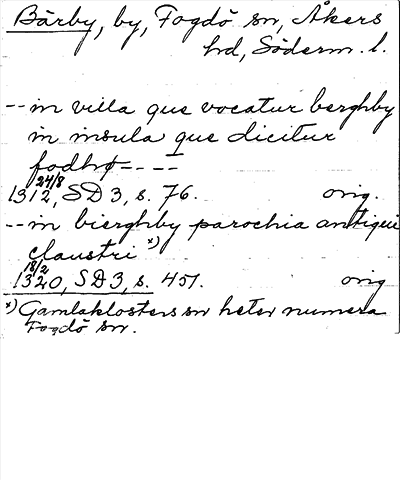 Bärby, by, Fogdö sn, Åkers
hd, Söderm. l.
-- in villa que vocatur berghby
in insula que dicitur
fodhø ----
24/8
1312, SD 3, s. 76. orig.
-- in bierghby parochia antiqui
claustri x)
18/2
1320, SD 3, s. 451. orig
x) Gamlaklosters sn heter numera
Fogdö sn.